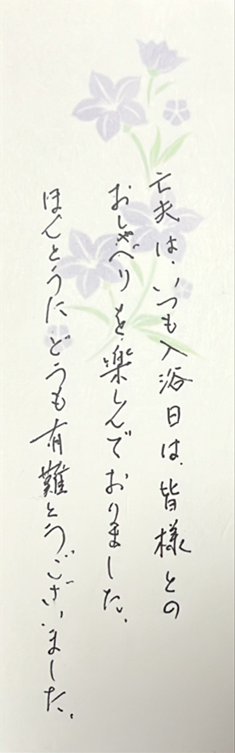 亡夫は、いつも入浴日は、皆様との
おしゃべりを楽しんでおりました。
ほんとうにどうも有難とうございました。